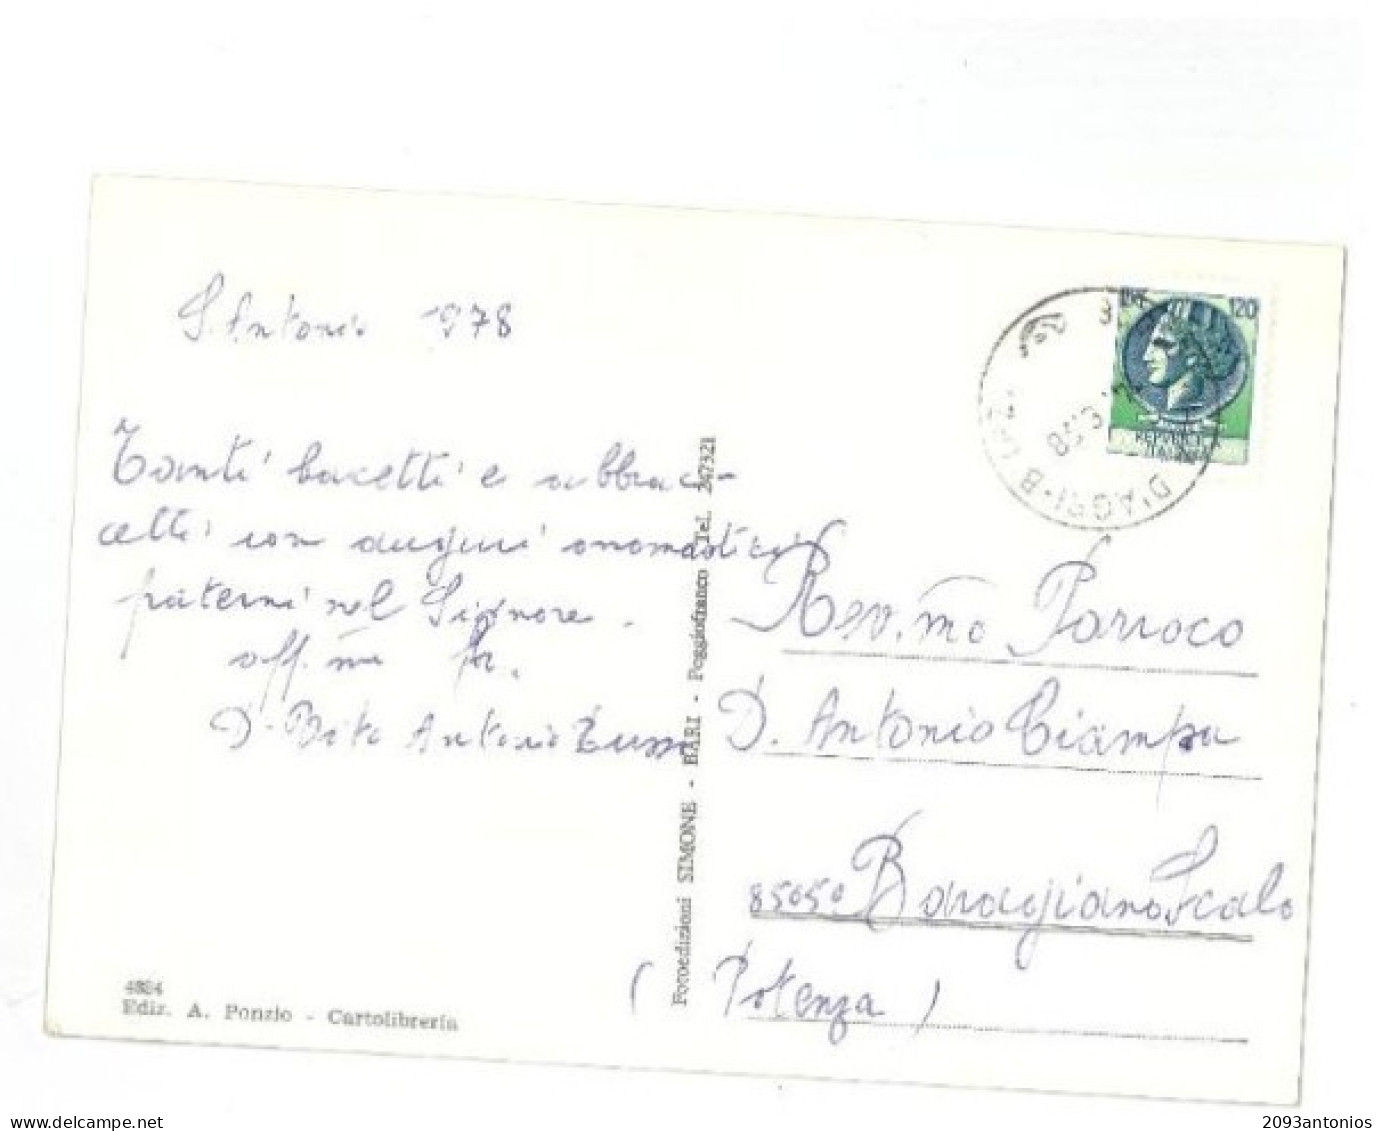 S. Antonio 1978
Tanti bacetti e abbrac-
cetti con auguri onomastici
fraterni nel Signore.
aff.mo
D. Vito Antonio
4884
Ediz. A. Ponzio - Cartolibreria
Fotoedizioni SIMONE - BARI - Poggiofranco Tel. 247321
120
REPVBBLICA
ITALIANA
D'AGRI-B
Rev.mo Parroco
D. Antonio Ciampa
85050 Baragiano Scalo
(Potenza)
www.delcampe.net
2093antonios